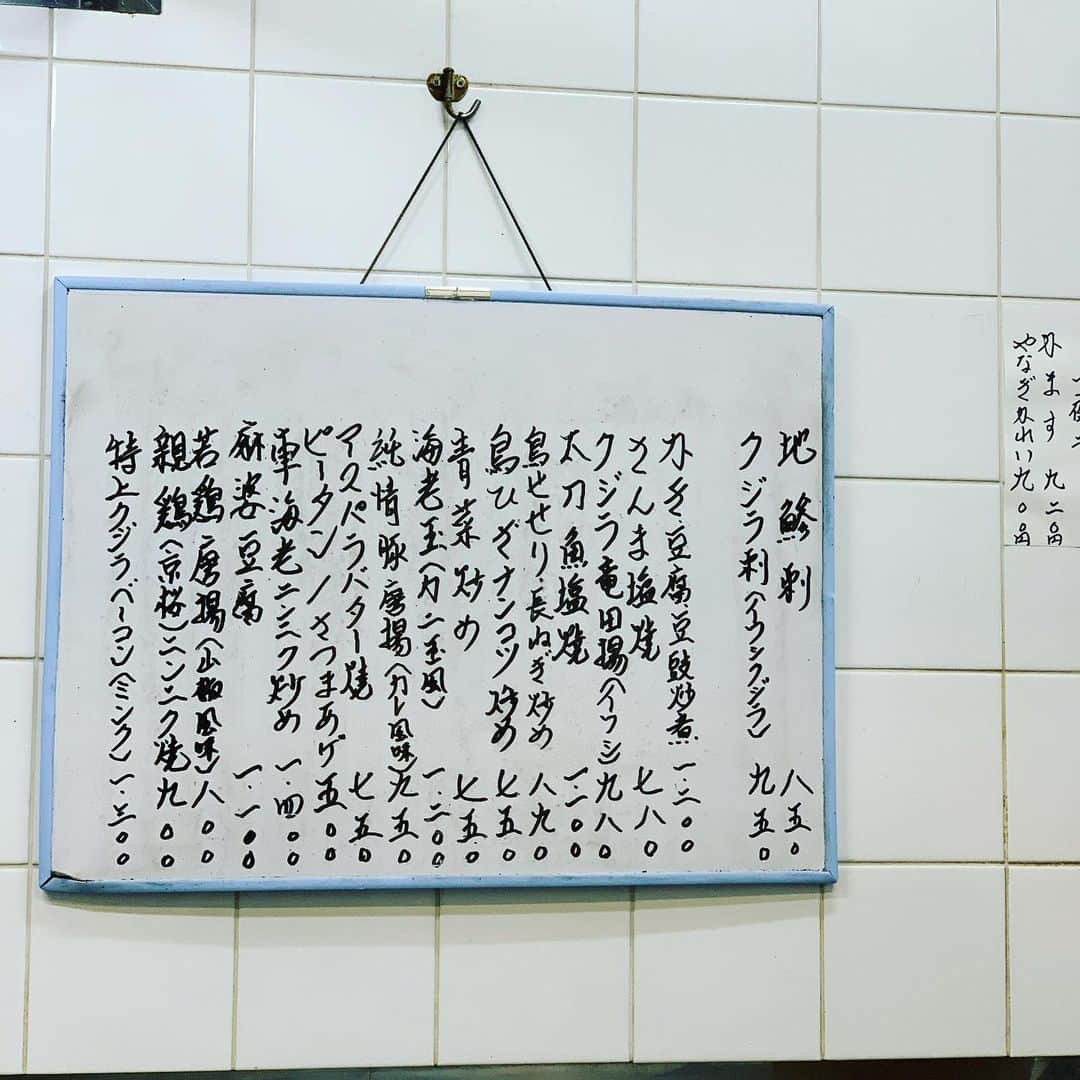 地鯵刺 八五〇
クジラ刺(イワシクジラ) 九五〇
カキ豆腐・豆豉炒煮 一・二〇〇
さんま塩焼 七八〇
クジラ竜田揚(イワシ) 九八〇
太刀魚塩焼 一・一〇〇
鳥せせり・長ねぎ炒め 八九〇
鳥ひざナンコツ炒め 七五〇
青菜炒め 七五〇
海老玉(カニ玉風) 一・二〇〇
純情豚唐揚(カレ風味) 九五〇
アスパラバター焼 七五〇
ピータン/さつまあげ 五〇〇
車海老ニンニク炒め 一・四〇〇
麻婆豆腐 一・一〇〇
若鶏唐揚(山椒風味) 八〇〇
親鶏(京桜)ニンニク焼 九〇〇
特上クジラベーコン(ミンク) 一・三〇〇
かます 九二〇円
やなぎかれい 九〇〇円